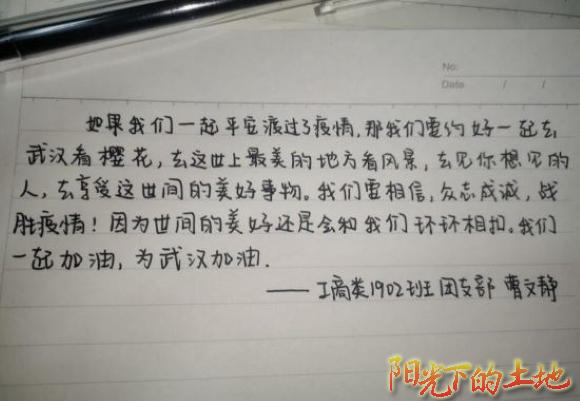 No:
Date / /
如果我们一起平安渡过了疫情,那我们要约好一起去
武汉看樱花,去这世上最美的地方看风景,去见你想见的
人,去享受这世间的美好事物。我们要相信,众志成诚,战
胜疫情!因为世间的美好还是会和我们环环相扣。我们
一起加油,为武汉加油.
——工商类1902班团支部 曹文静
阳光下的土地